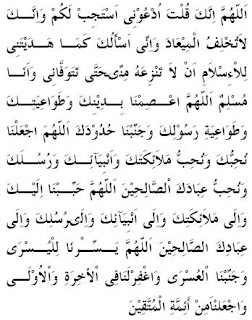 اَللّٰهُمَّ اِنَّكَ قُلْتَ اُدْعُوْنِى اَسْتَجِبْ لَكُمْ وَاِنَّـــكَ
لَاتُخْلِفُ الْمِيْعَادَ وَاِنِّى اَسْاَلُكَ كَمَـــا هَدَيْتَنِى
لِلْاِسْلَامِ اَنْ لَا تَنْزِعَهُ مِنِّىْ حَتَّى تَتَوَفَّانِى وَاَنَـــا
مُسْلِمٌ اَللّٰهُمَّ اعْصِمْنَا بِدِيْنِكَ وَطَوَاعِيَتِكَ
وَطَوَاعِيَةِ رَسُوْلِكَ وَجَنِّبْنَا حُدُوْدَكَ اَللّٰهُمَّ اجْعَلْنَا
نُحِبُّكَ وَنُحِبُّ مَلَائِكَتَكَ وَاَنْبِيَآئَكَ وَرُسُـــلَكَ
وَنُحِبُّ عِبَادَكَ الصَّالِحِيْنَ اَللّٰهُمَّ حَبِّبْنَا اِلَيْـــكَ
وَاِلَى مَلَائِكَتِكَ وَاِلَى اَنْبِيَائِكَ وَاِلَى رُسُلِكَ وَاِلَى
عِبَادِكَ الصَّالِحِيْنَ اَللّٰهُمَّ يَسِّـــرْنَا لِلْيُسْـــرَى
وَجَنِّبْنَا الْعُسْرَى وَاغْفِرْلَنَا فِى الْآخِرَةِ وَالْاُوْلَـــى
وَاجْعَلْنَا مِنْ اَئِمَّةِ الْمُتَّقِيْنَ